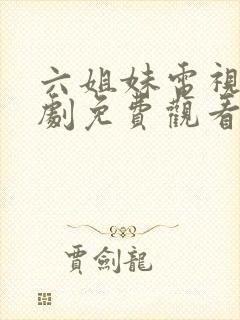 六姐妹電視
劇免費觀看
賈劍龍